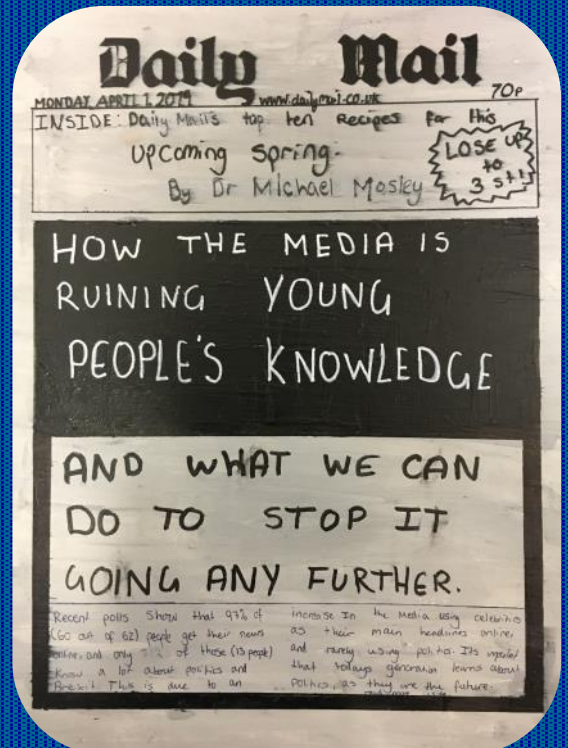 Daily Mail
MONDAY, APRIL 1, 2019 www.dailymail.co.uk 70p
INSIDE: Daily Mail's top ten Recipes for this
upcoming spring.
By Dr Michael Mosley
LOSE UP
to
3 st!!
HOW THE MEDIA IS
RUINING YOUNG
PEOPLE'S KNOWLEDGE
AND WHAT WE CAN
DO TO STOP IT
GOING ANY FURTHER.
Recent polls show that 97% of
(60 out of 62) people get their news
online, and only of those (13 people)
know a lot about politics and
Brexit. This is due to an
increase In the Media using celebrities
as their main headlines online,
and rarely using politics. Its
that todays generation learns about
politics, as they are the future.